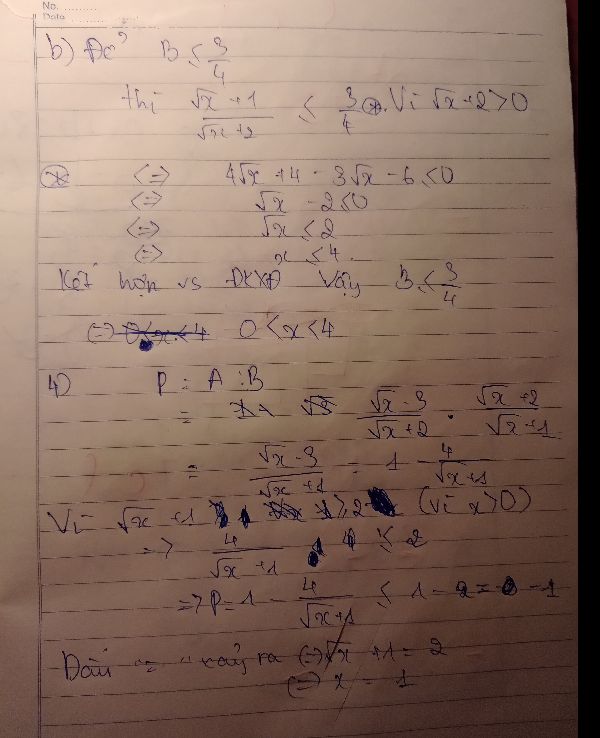 No. ..........
Date ..........
b) Để B ≤ 3/4
thì (√x + 1)/(√x + 2) ≤ 3/4 (*). Vì √x + 2 > 0
(*) <=> 4√x + 4 - 3√x - 6 ≤ 0
<=> √x - 2 ≤ 0
<=> √x ≤ 2
<=> x ≤ 4.
Kết hợp vs ĐKXĐ Vậy B ≤ 3/4
(=) 0 < x < 4
4) P = A : B
= (√x - 3)/(√x + 2) . (√x + 2)/(√x + 1)
= (√x - 3)/(√x + 1) = 1 - 4/(√x + 1)
Vì √x + 1 ≥ 2 (vì x > 0)
=> 4/(√x + 1) ≤ 2
=> P = 1 - 4/(√x + 1) ≤ 1 - 2 = -1
Dấu "=" xảy ra (=) √x + 1 = 2
(=) x = 1